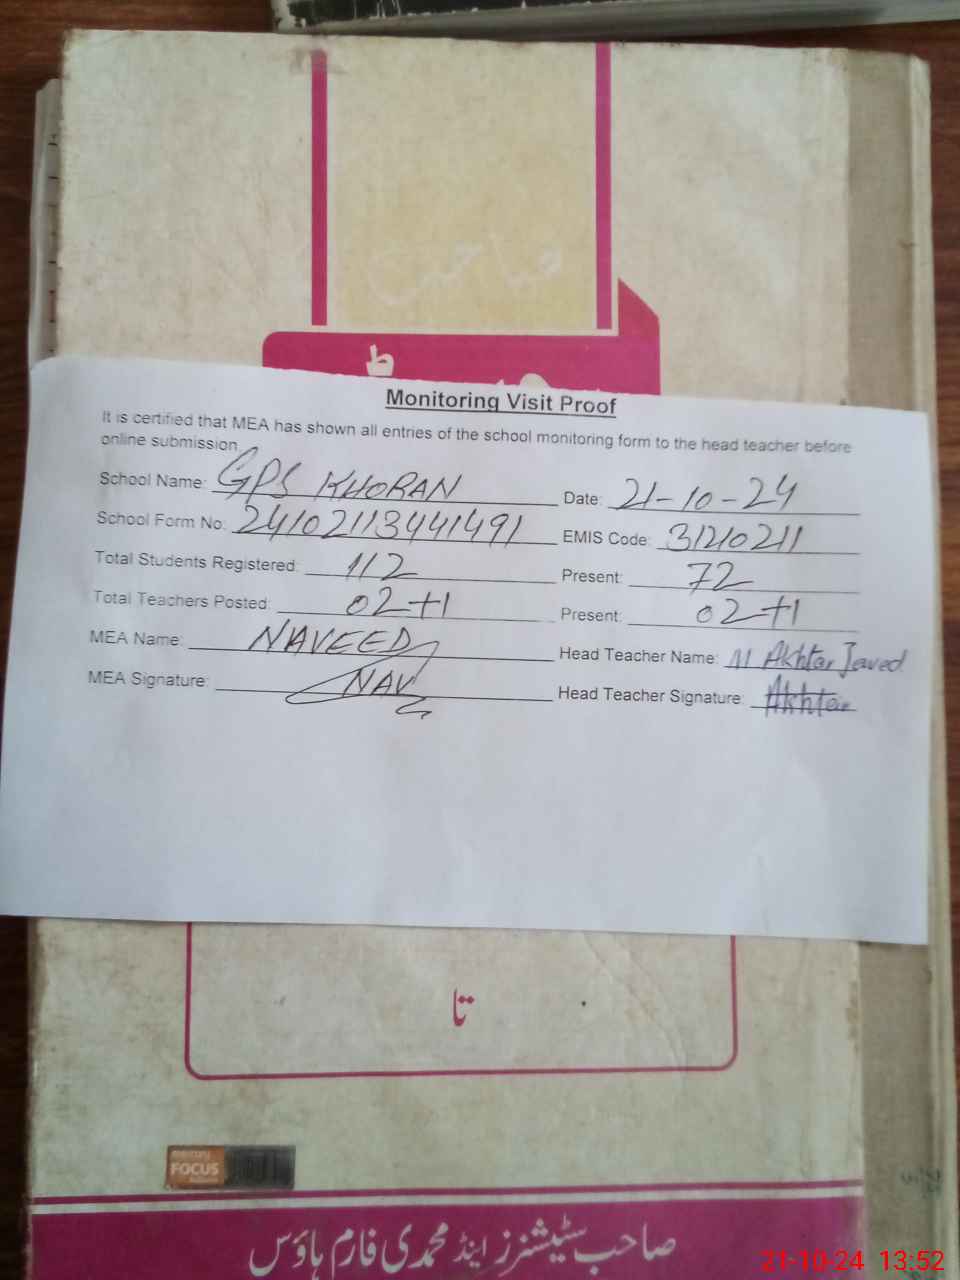 ط
Monitoring Visit Proof
It is certified that MEA has shown all entries of the school monitoring form to the head teacher before
online submission
School Name: GPS KHORAN Date: 21-10-24
School Form No: 24102113441491 EMIS Code: 31210211
Total Students Registered: 112 Present: 72
Total Teachers Posted: 02+1 Present: 02+1
MEA Name: NAVEED Head Teacher Name: M Akhtar Javed
MEA Signature: NAV Head Teacher Signature: Akhtar
تا
mercury
FOCUS
صاحب سٹیشنرز اینڈ محمدی فارم ہاؤس
21-10-24 13:52